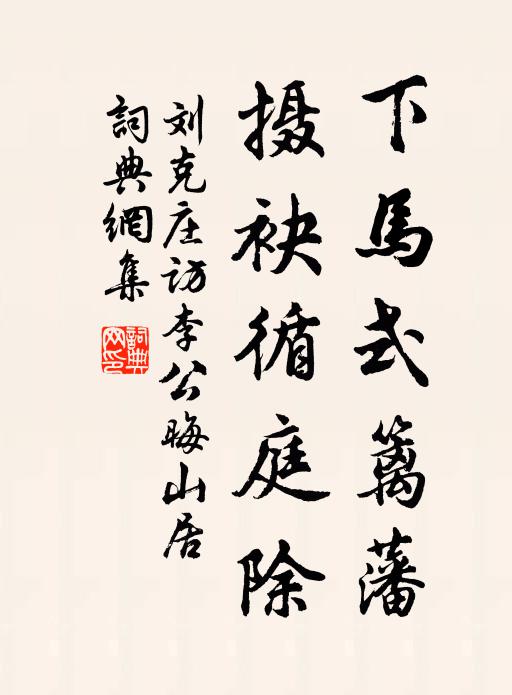 下馬式籬藩
摄袂循庭除
刘克庄访李公晦山居
詞典網集
詞典网印